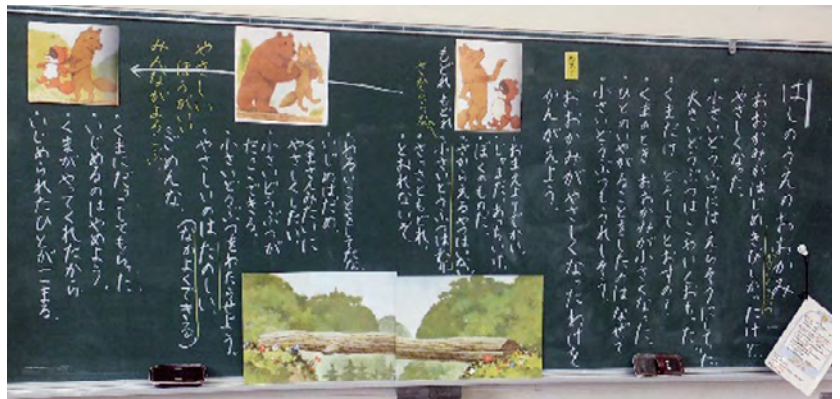 はしのうえのおおかみ
・おおかみがはじめきびしかったけど、
やさしくなった。
・小さいどうぶつにはえらそうにしてた。
大きいどうぶつはこわいとおもった。
・くまだけ どうしてとおすの?
・くまのときおおかみが小さくなった。
・ひとのいやがることをしたのはなぜ?
・小さいどうぶつでうれしそう。
おおかみがやさしくなったわけを
かんがえよう。
もどれもどれ
おまえよりでかい。
じゃまだ、あっちいけ。
ぼくのものだ。
・小さいどうぶつは
・さっさともどれ。
とおれないぞ。
わるいことをしてたな。
いじめはだめ。
くまさんみたいに
やさしくしたい。
小さいどうぶつが
だっこできる。
小さいどうぶつをわたらせよう。
・やさしいのはたのしい。
(なかよくできる)
ごめんな。
やさしい
ほうがいい
みんながよろこぶ
・くまにだっこしてもらった。
・いじめるのはやめよう。
・くまがやってくれたから
・いじめられたひとがこまる。